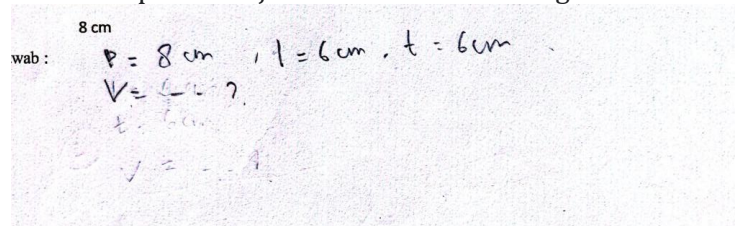 8 cm
wab : P = 8 cm , l = 6 cm , t = 6 cm
V = - - - ?
t = 6 cm
V = - - -